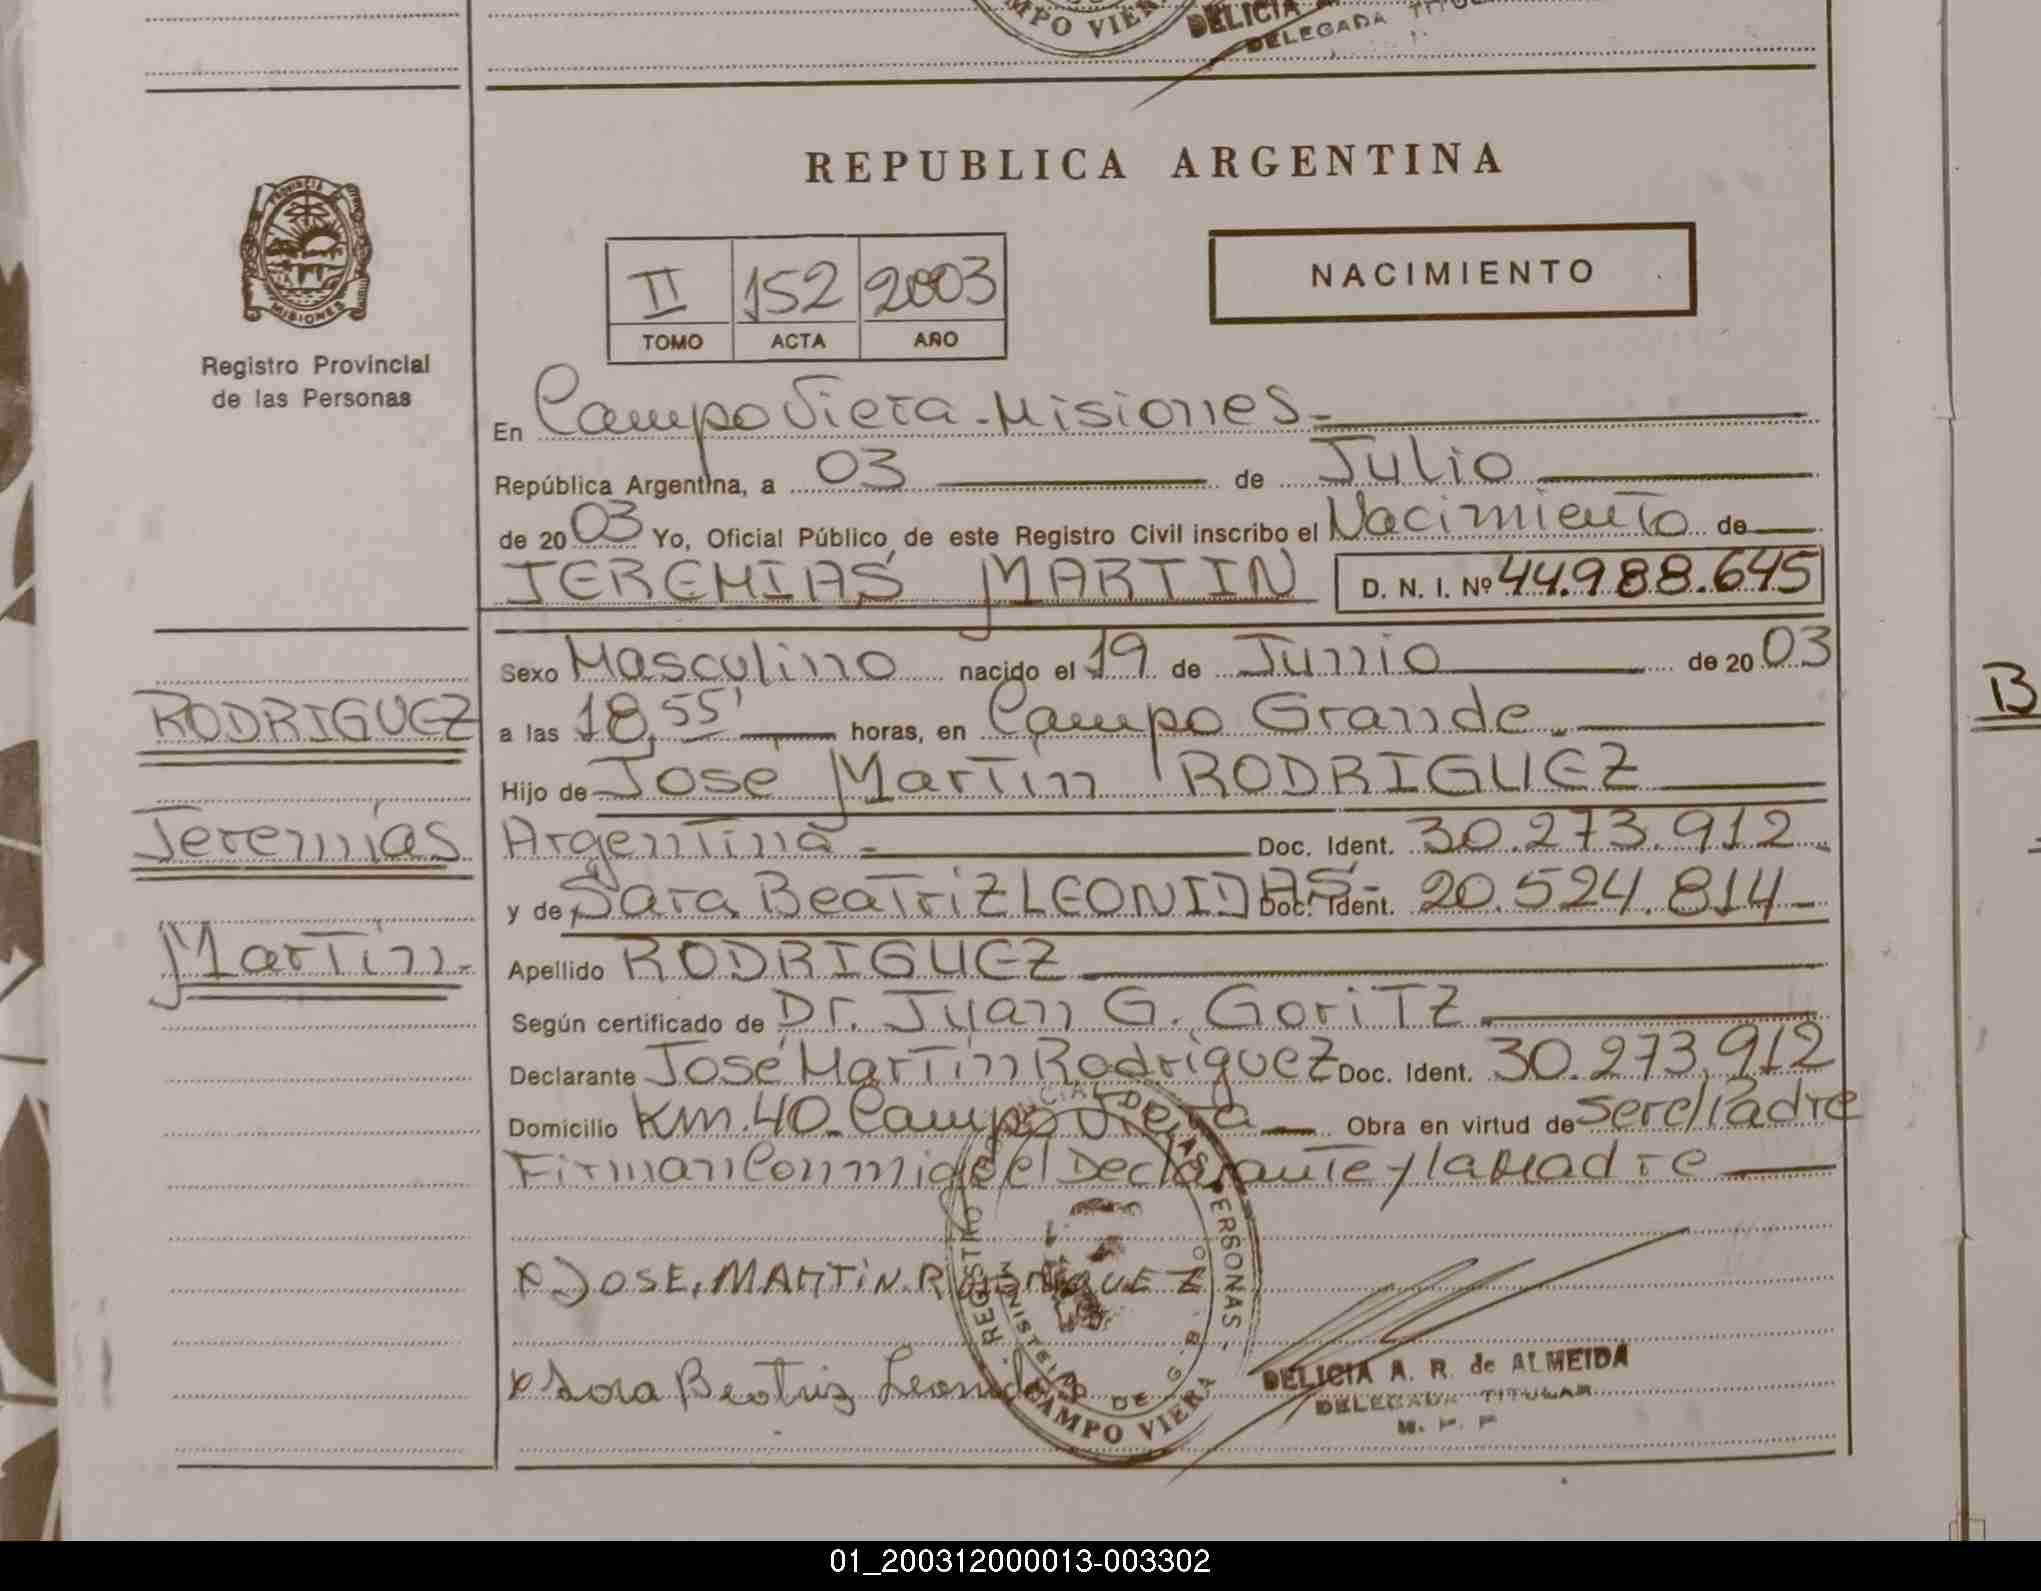 MPO VIERA
DELICIA
DELEGADA TITU
REPUBLICA ARGENTINA
PROVINCIA
MISIONES
Registro Provincial
de las Personas
II 152 2003
TOMO ACTA AÑO
NACIMIENTO
En Campo Viera - Misiones -
República Argentina, a 03 de Julio
de 2003 Yo, Oficial Público de este Registro Civil inscribo el Nacimiento de
JEREMIAS MARTIN D. N. I. Nº 44.988.645
Sexo Masculino nacido el 19 de Junio de 2003
RODRIGUEZ
a las 18,55' horas, en Campo Grande
Hijo de Jose Martin RODRIGUEZ
Jeremías
Argentina - Doc. Ident. 30.273.912
y de Sara Beatriz LEONIDAS - Doc. Ident. 20.524.814 -
Martín -
Apellido RODRIGUEZ
Según certificado de Dr. Juan G. Goritz
Declarante José Martín Rodríguez Doc. Ident. 30.273.912
Domicilio Km. 40 - Campo Viera Obra en virtud de ser el Padre
Firman Conmigo el Declarante y la Madre
JOSE, MARTiN. RODRIGUEZ
Sara Beatriz Leonidas
REGISTRO PERSONAS
MINISTERIO DE G. B.
CAMPO VIERA
DELICIA A. R. de ALMEIDA
DELEGADA TITULAR
B
01_200312000013-003302